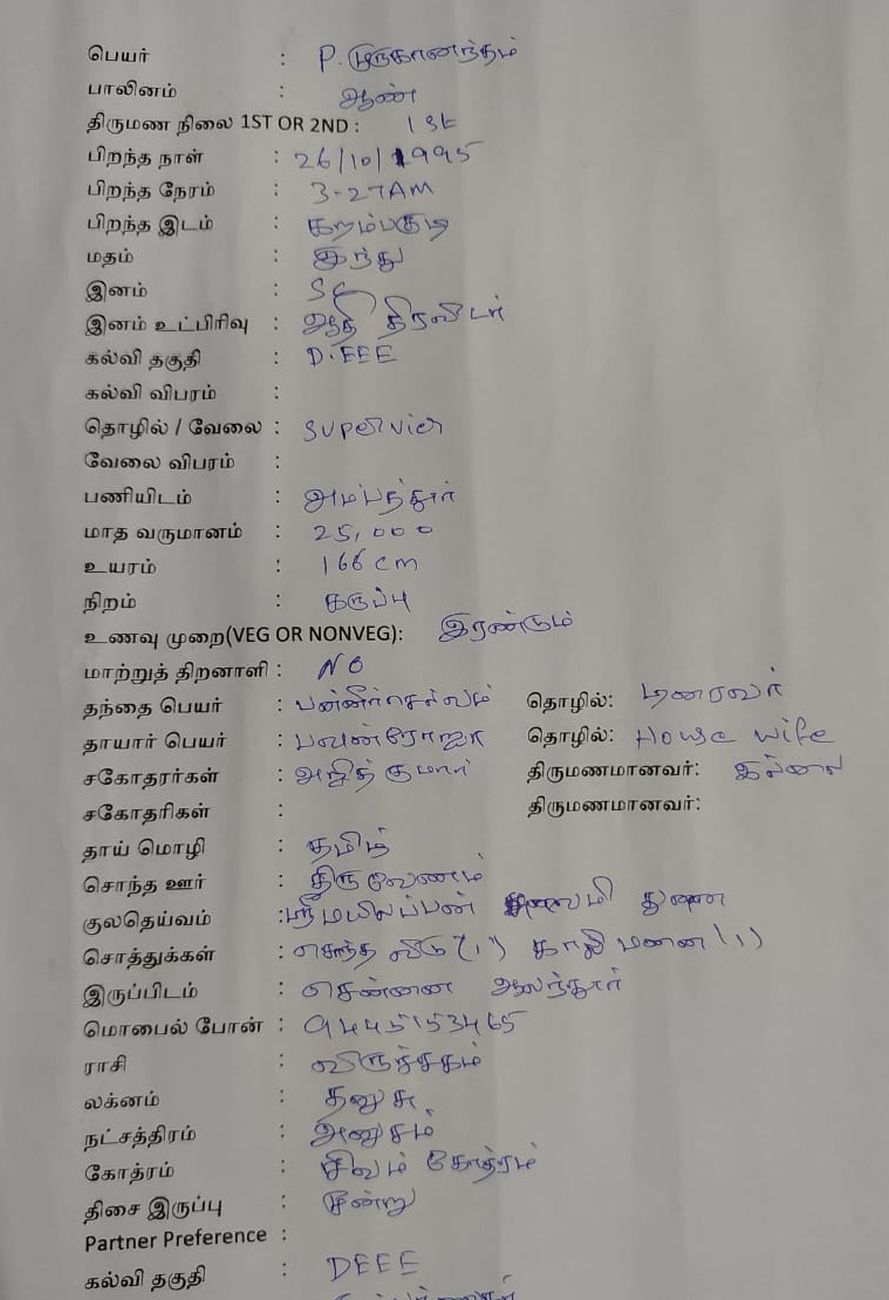 பெயர் : P. முருகானந்தம்
பாலினம் : ஆண்
திருமண நிலை 1ST OR 2ND : 1st
பிறந்த நாள் : 26/10/1995
பிறந்த நேரம் : 3-27AM
பிறந்த இடம் : கறம்பகுடி
மதம் : இந்து
இனம் : SC
இனம் உட்பிரிவு : ஆதி திராவிடர்
கல்வி தகுதி : D.EEE
கல்வி விபரம் :
தொழில் / வேலை : Supervier
வேலை விபரம் :
பணியிடம் : அம்பத்தூர்
மாத வருமானம் : 25,000
உயரம் : 166 cm
நிறம் : கருப்பு
உணவு முறை(VEG OR NONVEG): இரண்டும்
மாற்றுத் திறனாளி : NO
தந்தை பெயர் : பன்னீர்செல்வம் தொழில்:
தாயார் பெயர் : பவுன்ரோஜா தொழில்: House wife
சகோதரர்கள் : அஜித் குமார் திருமணமானவர்: இல்லை
சகோதரிகள் : திருமணமானவர்:
தாய் மொழி : தமிழ்
சொந்த ஊர் : திருவோணம்
குலதெய்வம் : ஸ்ரீ மயிலப்பன் துணை
சொத்துக்கள் : சொந்த வீடு (1) காலி மனை (1)
இருப்பிடம் : சென்னை ஆலந்தூர்
மொபைல் போன் : 9445153465
ராசி : விருச்சகம்
லக்னம் : தனுசு
நட்சத்திரம் : அனுசம்
கோத்ரம் : சிவம் கோத்ரம்
திசை இருப்பு : மூன்று
Partner Preference :
கல்வி தகுதி : DEEE